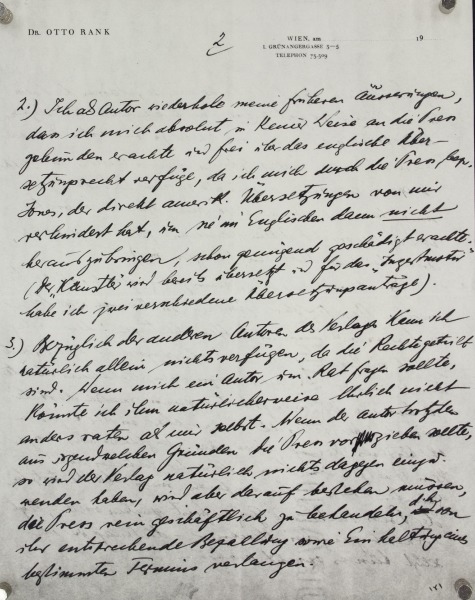 DR. OTTO RANK
2
WIEN, am 19
I. GRÜNANGERGASSE 3–5
TELEPHON 75-599
2.) Ich als Autor wiederhole meine früheren Äusserungen,
dass ich mich absolut in keiner Weise an die Press
gebunden erachte und frei über das englische Über-
setzungsrecht verfüge, da ich mich durch die Press, bezw.
Jones, der direkt amerik. Übersetzungen von mir
verhindert hat, um sie im Englischen dann nicht
herauszubringen, schon genügend geschädigt erachte.
(Der „Künstler" wird bereits übersetzt und für das „Inzestmotiv"
habe ich zwei verschiedene Übersetzungsanträge).
3.) Bezüglich der anderen Autoren des Verlages kann ich
natürlich allein nichts verfügen, da die Rechte geteilt
sind. Wenn mich ein Autor um Rat fragen sollte,
könnte ich ihm natürlicherweise ehrlich nicht
anders raten als mir selbst. Wenn der Autor trotzdem
aus irgendwelchen Gründen die Press vorziehen sollte,
so wird der Verlag natürlich nichts dagegen einzu-
wenden haben, wird aber darauf bestehen müssen,
die Press rein geschäftlich zu behandeln, d. h. von
ihr entsprechende Bezahlung sowie Einhaltung eines
bestimmten Termins verlangen.